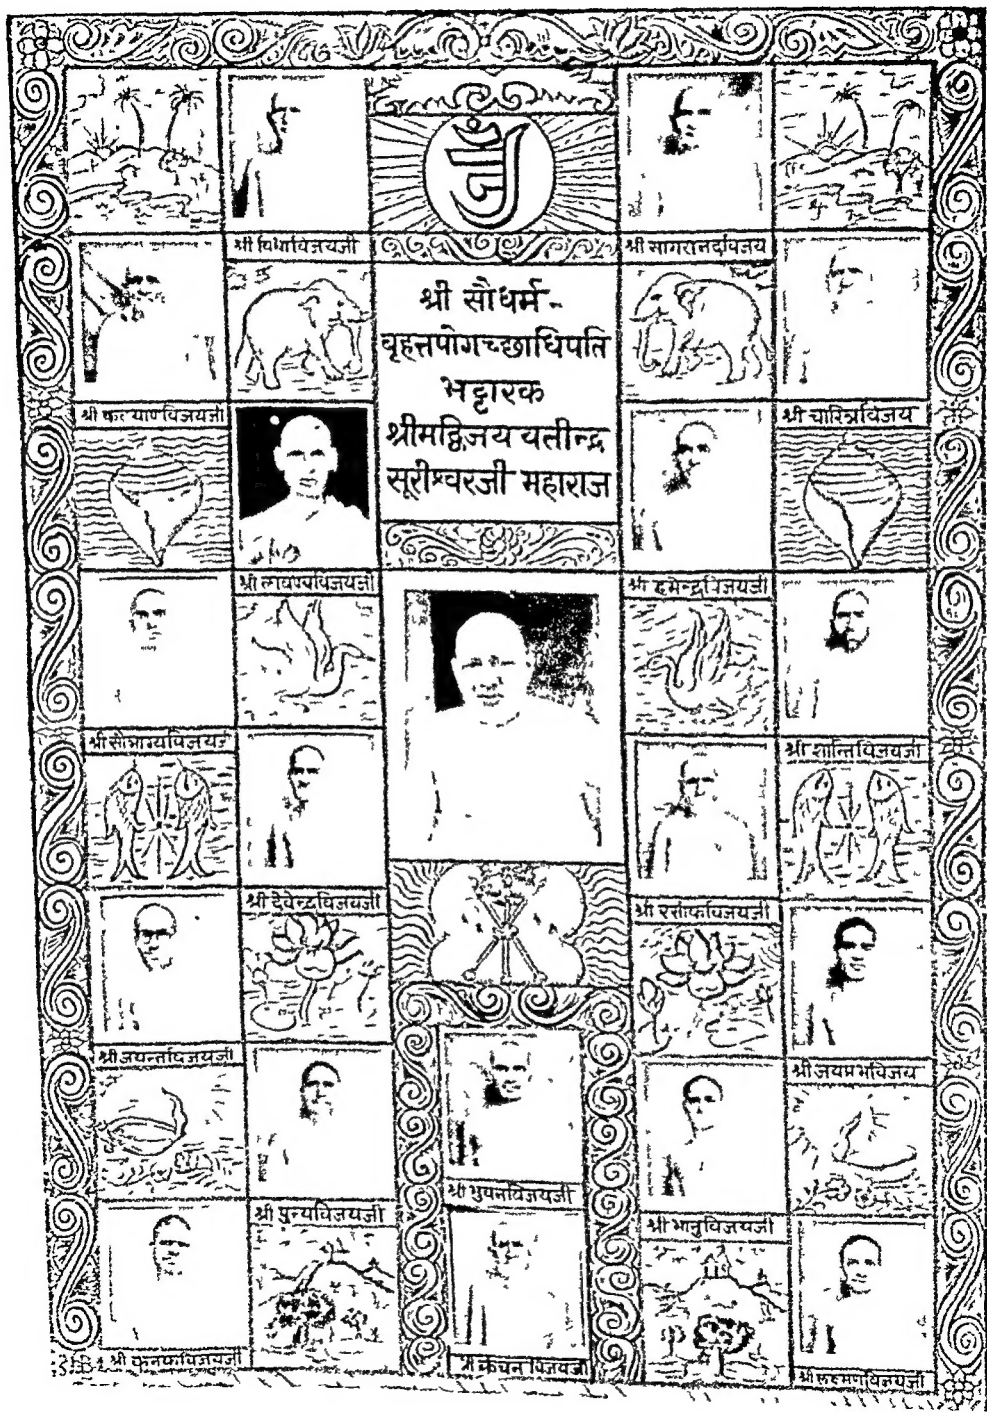 श्री विद्याविजयजी
श्री सागरानंदविजय
श्री सौधर्म-
बृहत्तपोगच्छाधिपति
भट्टारक
श्रीमद्विजय यतीन्द्र
सूरीश्वरजी महाराज
श्री कल्याणविजयजी
श्री चारित्रविजय
श्री लावण्यविजयजी
श्री हमेन्द्रविजयजी
श्री सौभाग्यविजयजी
श्री शान्तिविजयजी
श्री देवेन्द्रविजयजी
श्री रसीकविजयजी
श्री जयन्तविजयजी
श्री जयप्रभविजय
श्री भुवनविजयजी
श्री पुन्यविजयजी
श्री भानुविजयजी
श्री कनकविजयजी
श्री कंचनविजयजी
श्री लक्ष्मणविजयजी